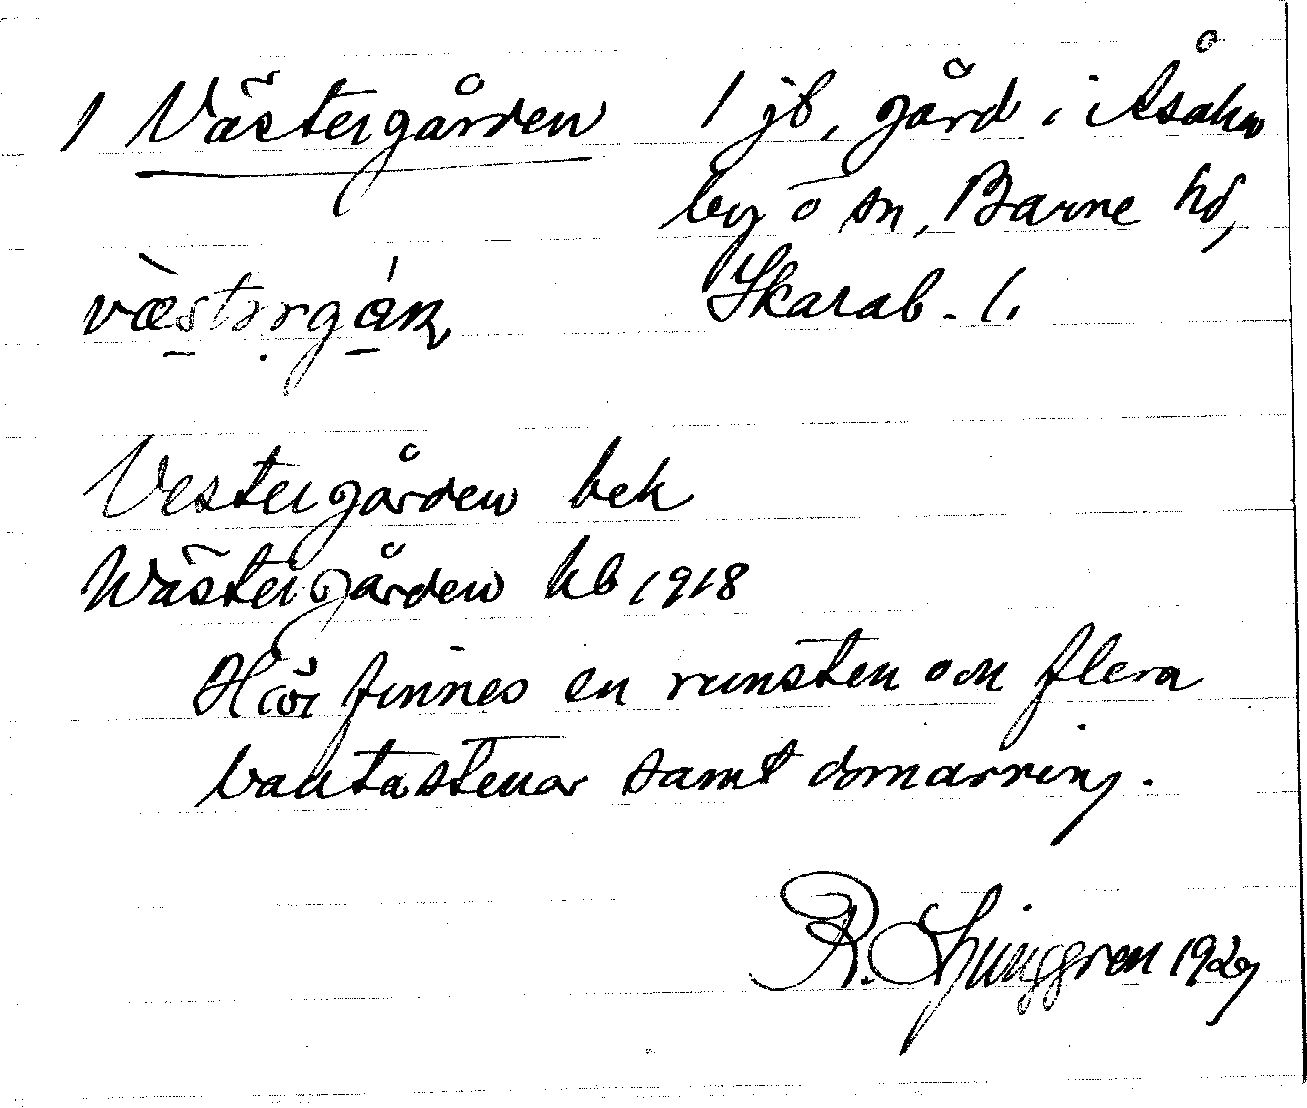 1 Västergården 1 jb, gård i Åsaka
by o sn, Barne hd,
Skarab. l.
væ̀stərgán
Vestergården bek
Wästergården kb 1918
Här finnes en runsten och flera
bautastenar samt domarring.
R. Ljunggren 1927